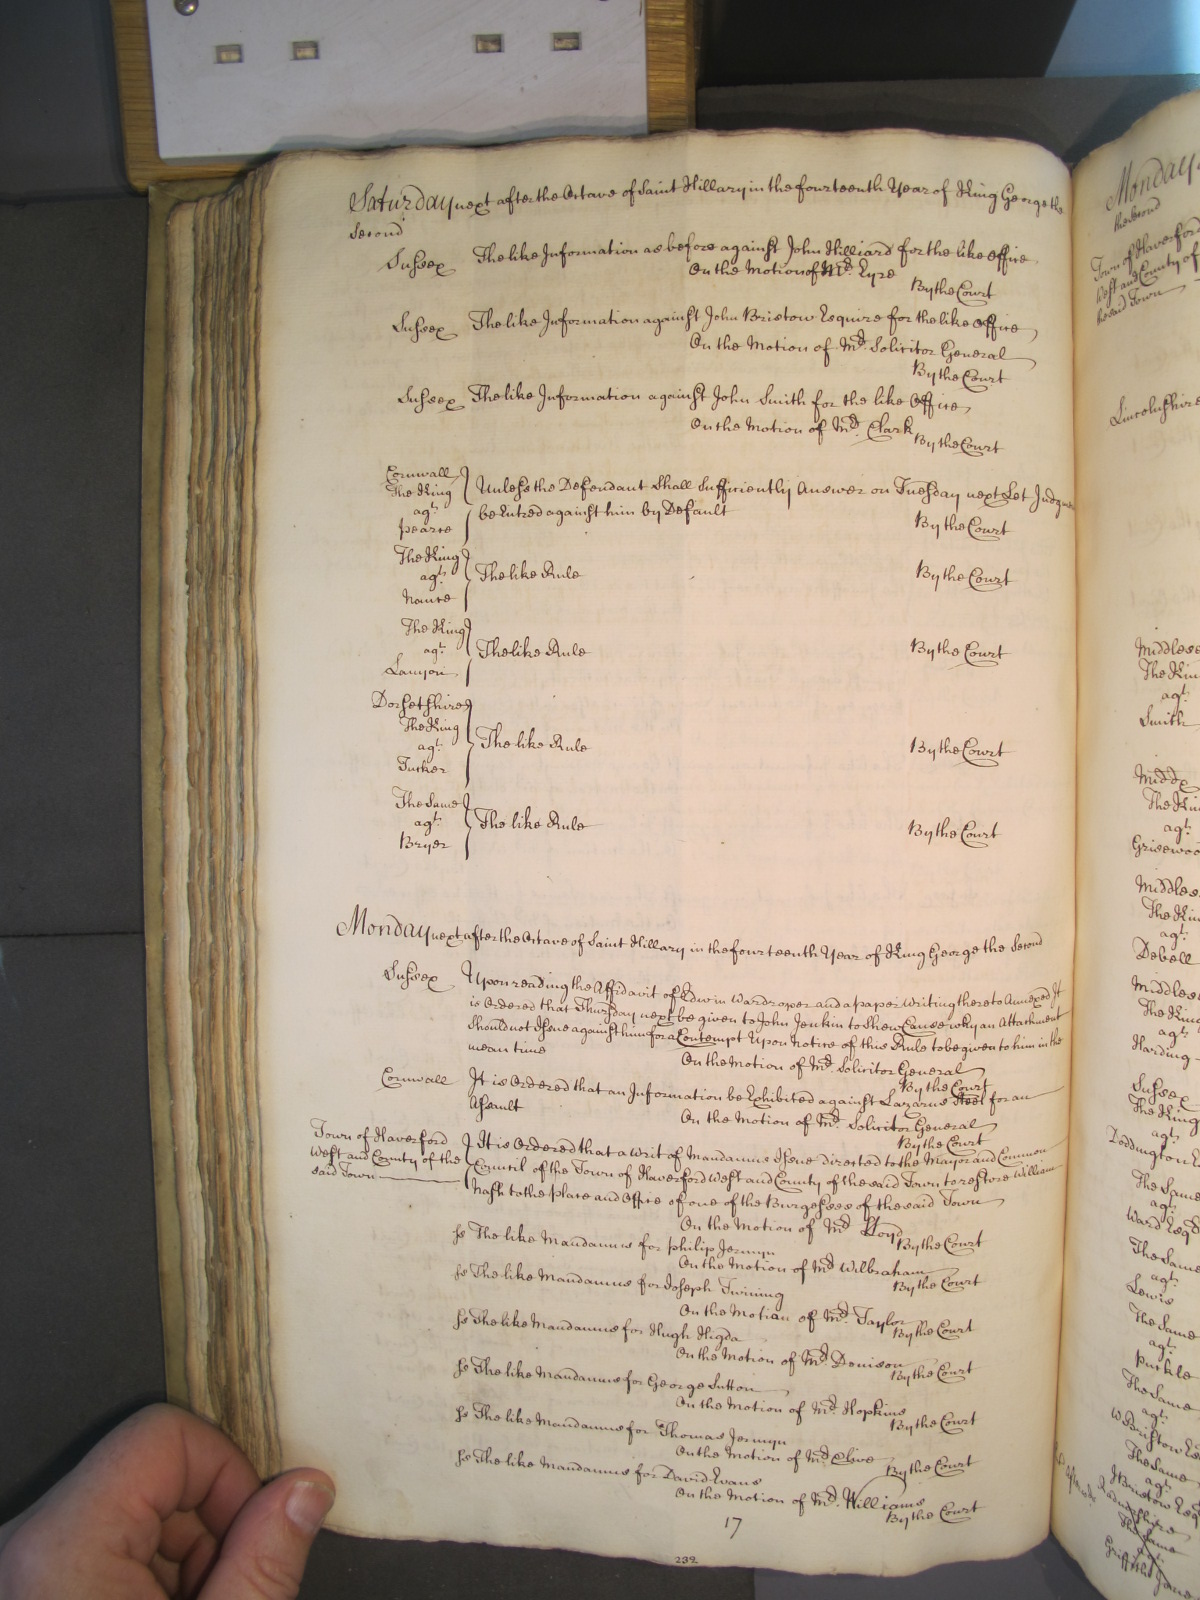 Saturday next after the Octave of Saint Hillary in the fourteenth Year of King George the
Second
Sussex The like Information as before against John Hilliard for the like Office
On the Motion of Mr. Eyre
By the Court
Sussex The like Information against John Bristow Esquire for the like Office
On the Motion of Mr. Solicitor General
By the Court
Sussex The like Information against John Smith for the like Office
On the Motion of Mr. Clark
By the Court
Cornwall
The King
agt.
Pearse
Unless the Defendant Shall Sufficiently Answer on Tuesday next Let
be Entred against him by Default
By the Court
The King
agt.
Nance
The like Rule
By the Court
The King
agt.
Lanyon
The like Rule
By the Court
Dorsetshire
The King
agt.
Tucker
The like Rule
By the Court
The Same
agt.
Bryer
The like Rule
By the Court
Monday next after the Octave of Saint Hillary in the fourteenth Year of King George the Second
Sussex Upon reading the Affidavit of Edwin Wardroper and a paper Writing thereto Annexed It
is Ordered that Thursday next be given to John Jenkin to Shew Cause why an Attachment
Should not Issue against him for a Contempt Upon Notice of this Rule to be given to him in the
mean time
On the Motion of Mr. Solicitor General
By the Court
Cornwall It is Ordered that an Information be Exhibited against Lazarus Steel for an
Assault
On the Motion of Mr. Solicitor General
By the Court
Town of Haverford
West and County of the
said Town
It is Ordered that a Writ of Mandamus Issue directed to the Mayor and Common
Council of the Town of Haverford West and County of the said Town to restore William
Nash to the place and Office of one of the Burgesses of the said Town
On the Motion of Mr. Lloyd
By the Court
ss The like Mandamus for Philip Jermyn
On the Motion of Mr. Wilbraham
By the Court
ss The like Mandamus for Joseph Twining
On the Motion of Mr. Taylor
By the Court
ss The like Mandamus for Hugh Higda
On the Motion of Mr. Denison
By the Court
ss The like Mandamus for George Sutton
On the Motion of Mr. Hopkins
By the Court
ss The like Mandamus for Thomas Jermyn
On the Motion of Mr. Clive
By the Court
ss The like Mandamus for David Evans
On the Motion of Mr. Williams
By the Court
17
232
Monday
the Second
Town of Haverford
West and County of
the said Town
Lincolnshire
agt.
Smith
Middx
agt.
agt.
Debell
agt.
Harding
Sussex
The King
agt.
Doddington
The Same
agt.
Ward Esqr
The Same
agt.
Lewis
The Same
agt.
Puckle
The Same
agt.
The Same
agt.
Radnorshire
The Same